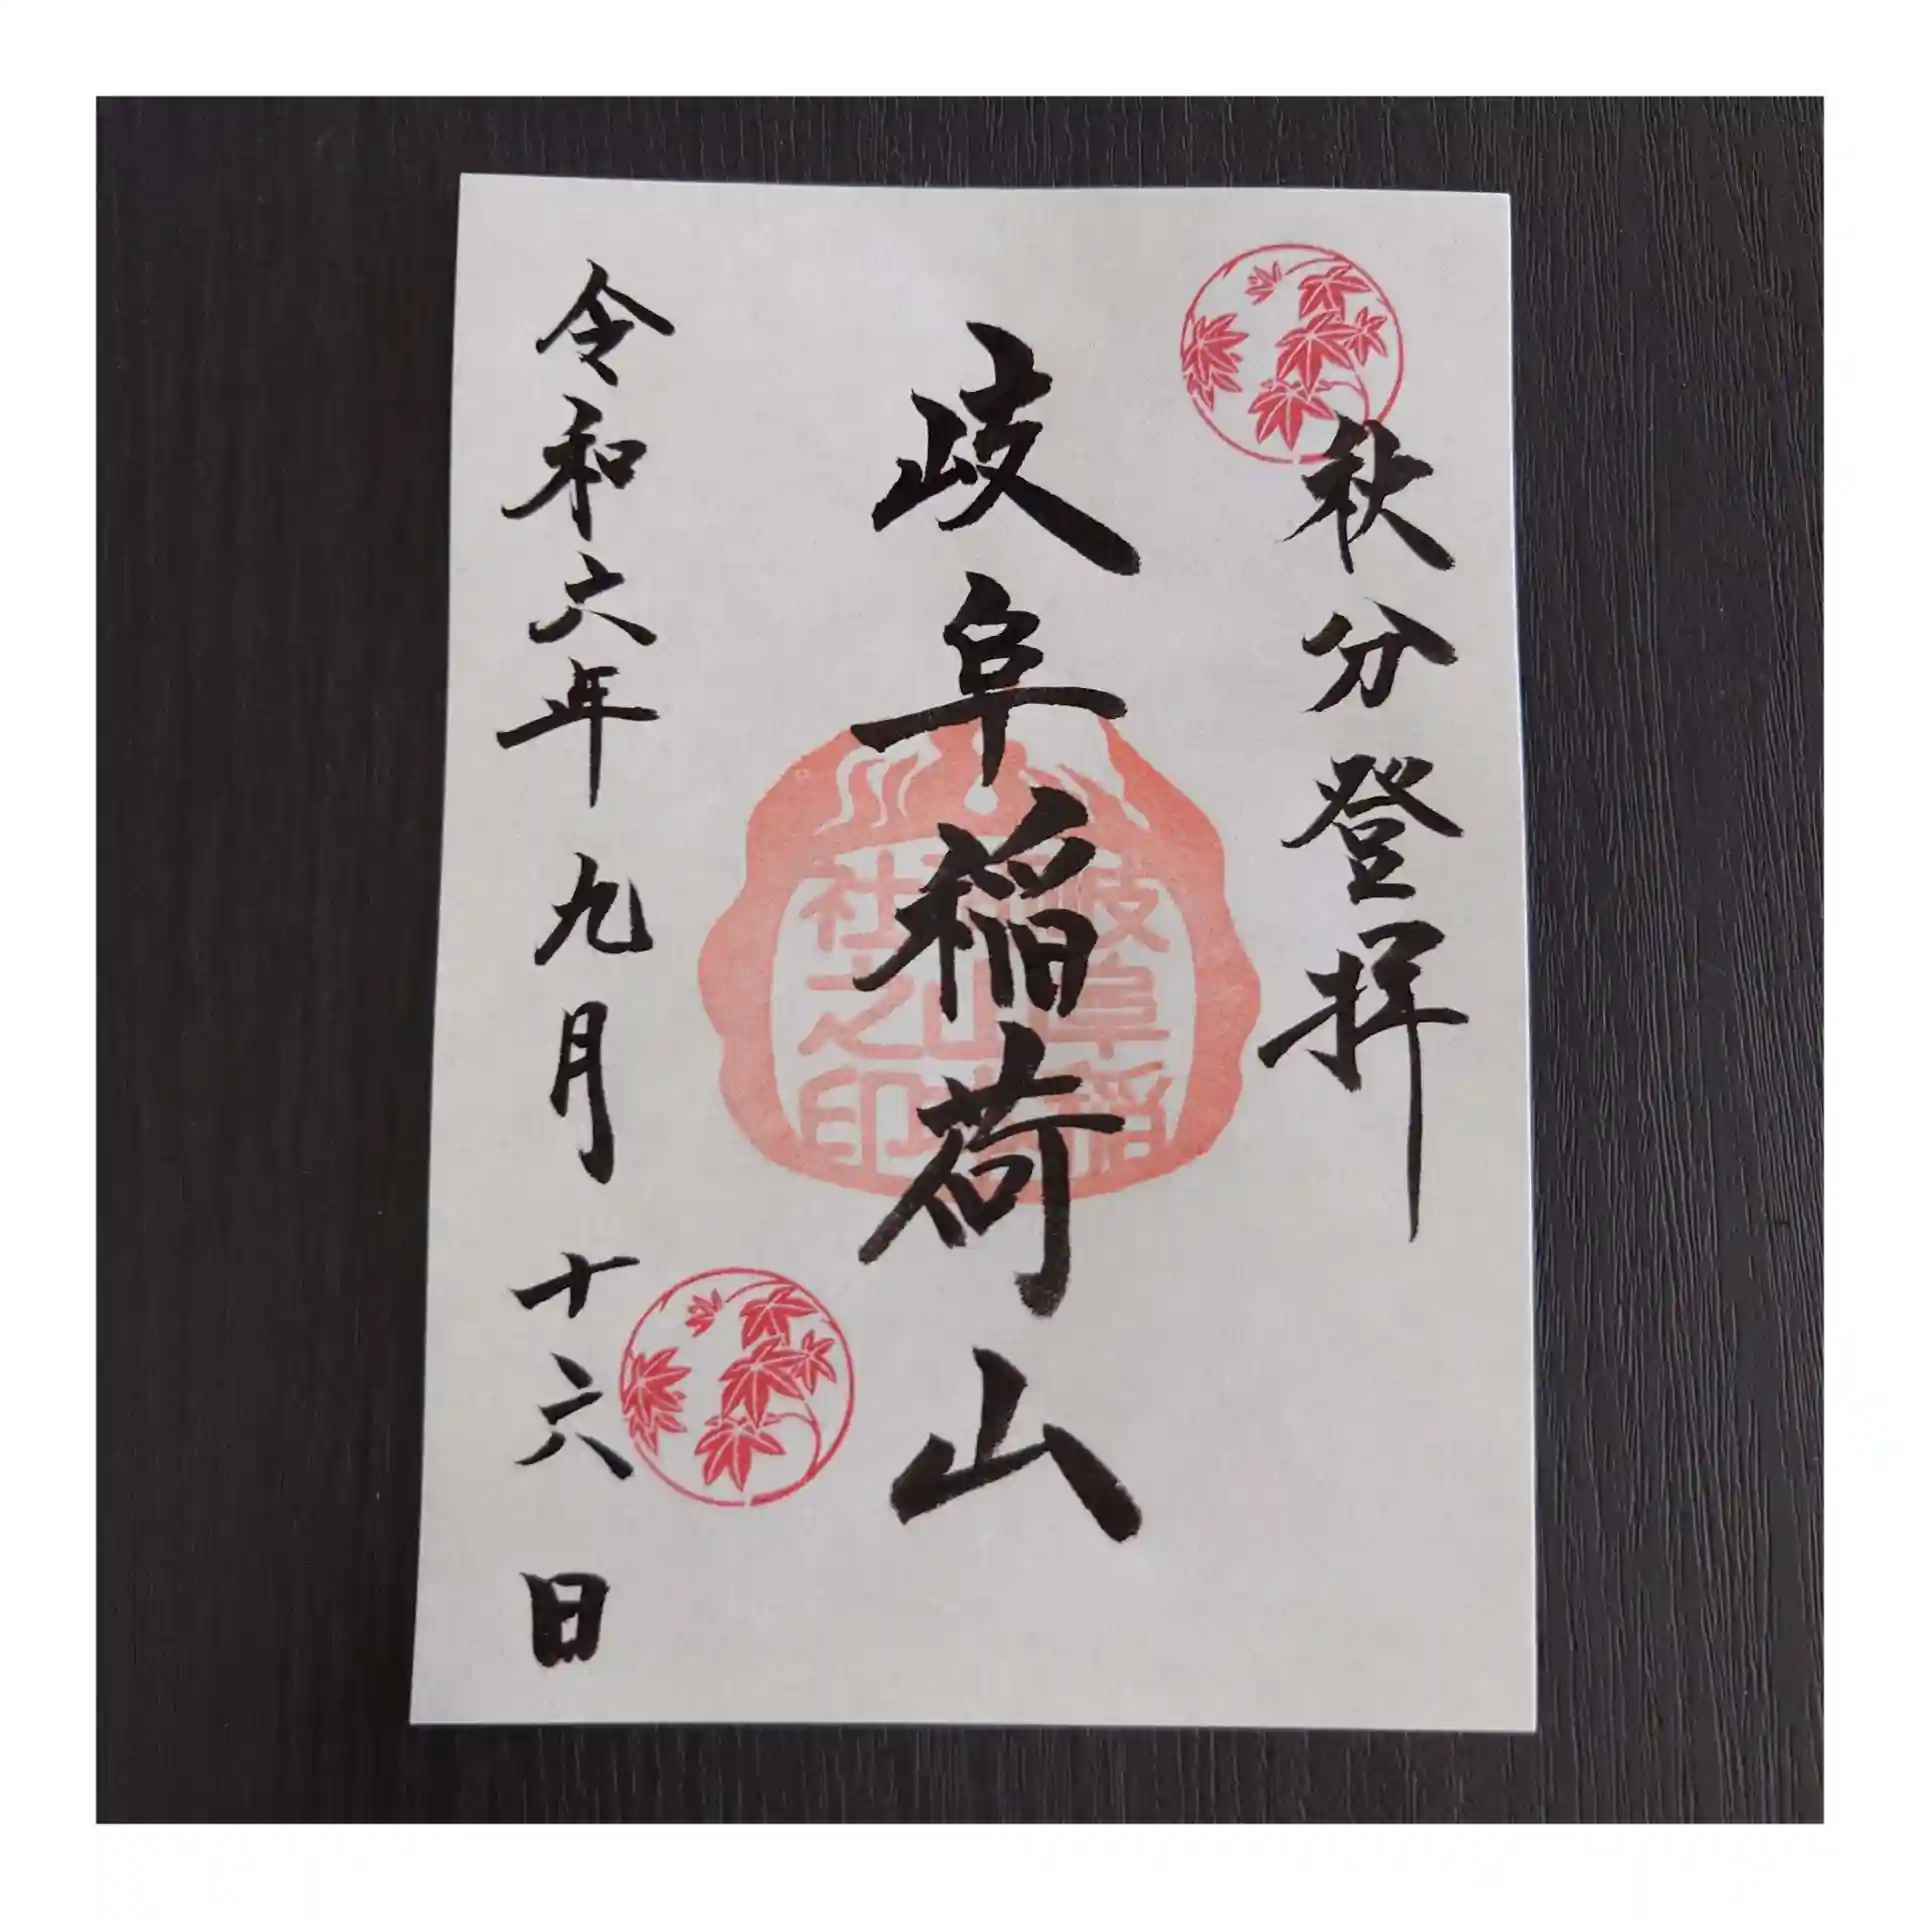 秋分登拝
岐阜稲荷山
令和六年九月十六日
岐阜稲
山
社之印